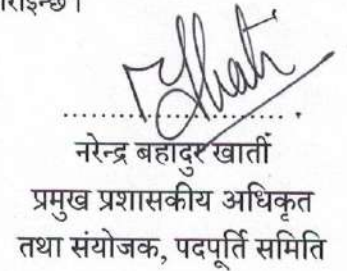 राइन्छ।
नरेन्द्र बहादुर खाती
प्रमुख प्रशासकीय अधिकृत
तथा संयोजक, पदपूर्ति समिति